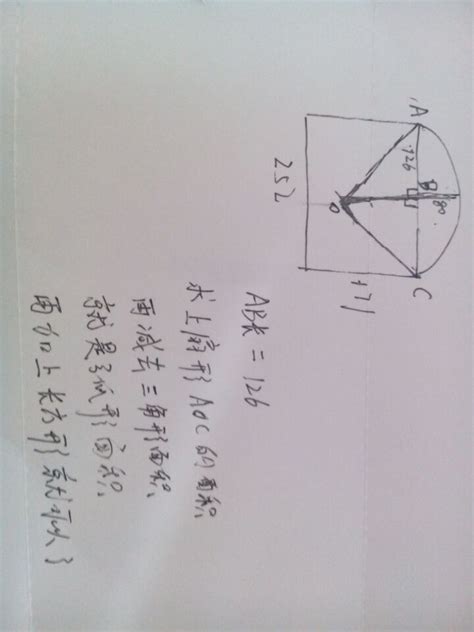 A
126
B
80
C
O
252
AB长=126
求上扇形AOC的面积
再减去三角形面积
就是弧形面积
再加上长方形就可以了